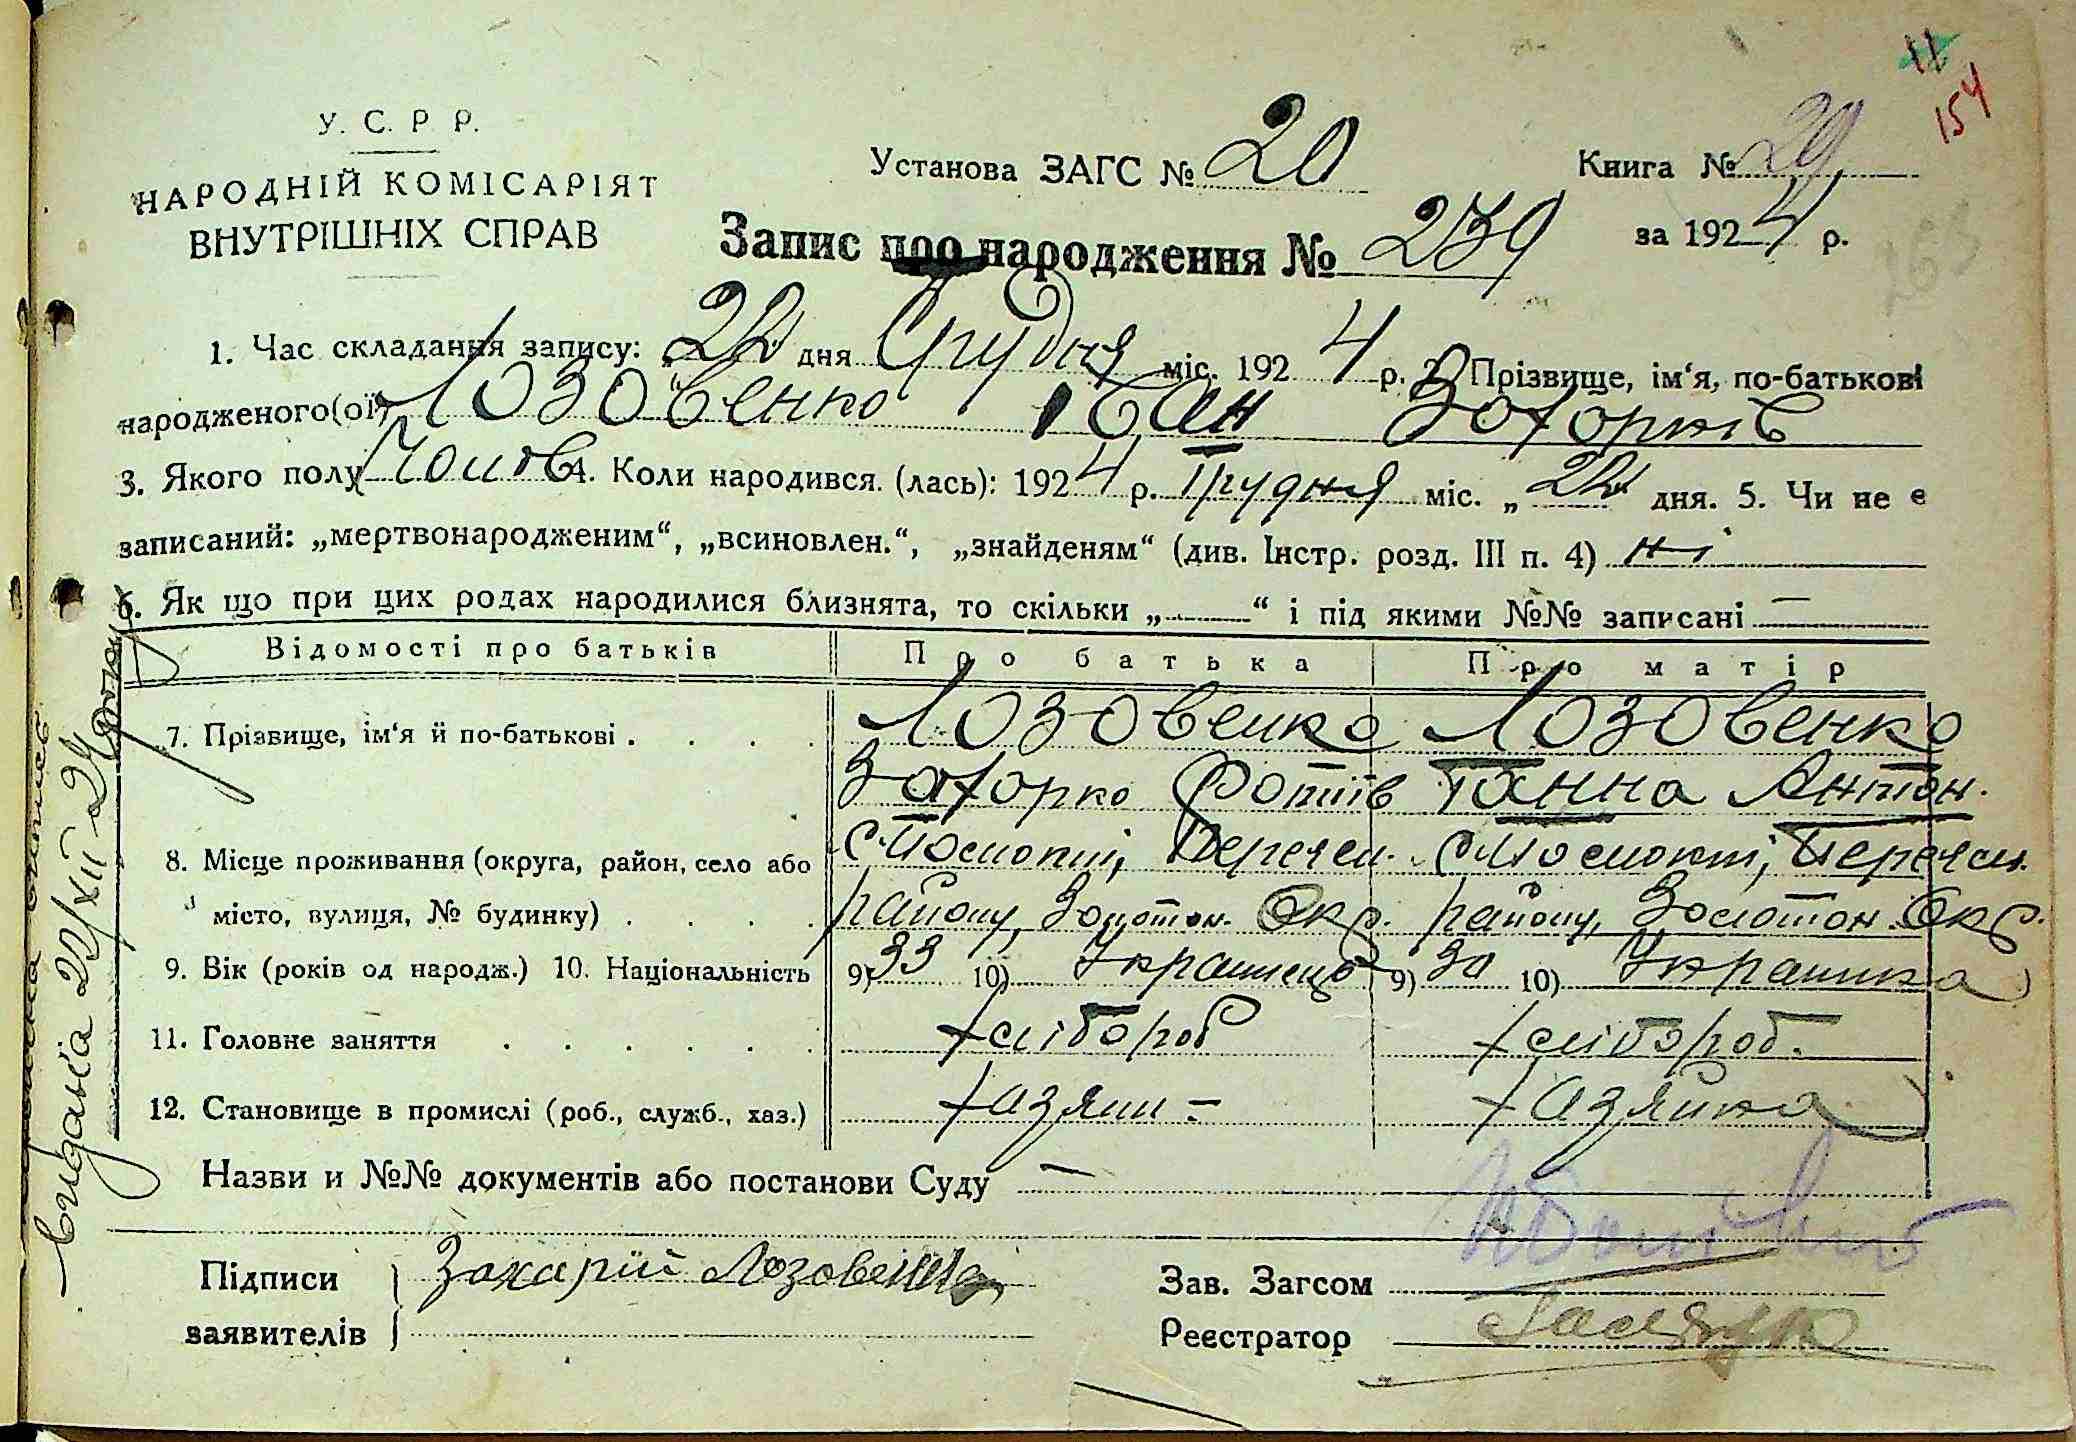 11
154
У. С. Р Р.
НАРОДНІЙ КОМІСАРІЯТ
ВНУТРІШНІХ СПРАВ
Установа ЗАГС № 20
Книга № 29
за 1924 р.
263
Запис про народження № 239
1. Час складання запису: „22" дня Грудня міс. 1924 р. 2. Прізвище, ім'я, по-батькові
народженого(ої) Лозовенко Іван Захорків
3. Якого полу Чолов. 4. Коли народився. (лась): 1924 р. Грудня міс. „22 дня. 5. Чи не є
записаний: „мертвонародженим“, „всиновлен.“, „знайденям“ (див. Інстр. розд. III п. 4) ні
6. Як що при цих родах народилися близнята, то скільки „—“ і під якими №№ записані —
Відомості про батьків Про батька Про матір
7. Прізвище, ім'я й по-батькові . . . . Лозовенко Лозовенко
Захорко Фотіїв Ганна Антон.
8. Місце проживання (округа, район, село або
місто, вулиця, № будинку) . . . . району, Золотон. Окр. району, Золотон. Окр.
9. Вік (років од народж.) 10. Національність 9) 33 10) Українець 9) 30 10) Українка
11. Головне заняття . . . . . . хлібороб хлібороб.
12. Становище в промислі (роб., служб., хаз.) хазяин - хазяйка
Назви и №№ документів або постанови Суду —
Підписи
заявителів
Захарій Лозовенко
Зав. Загсом
Реєстратор
видана 22/XII 24